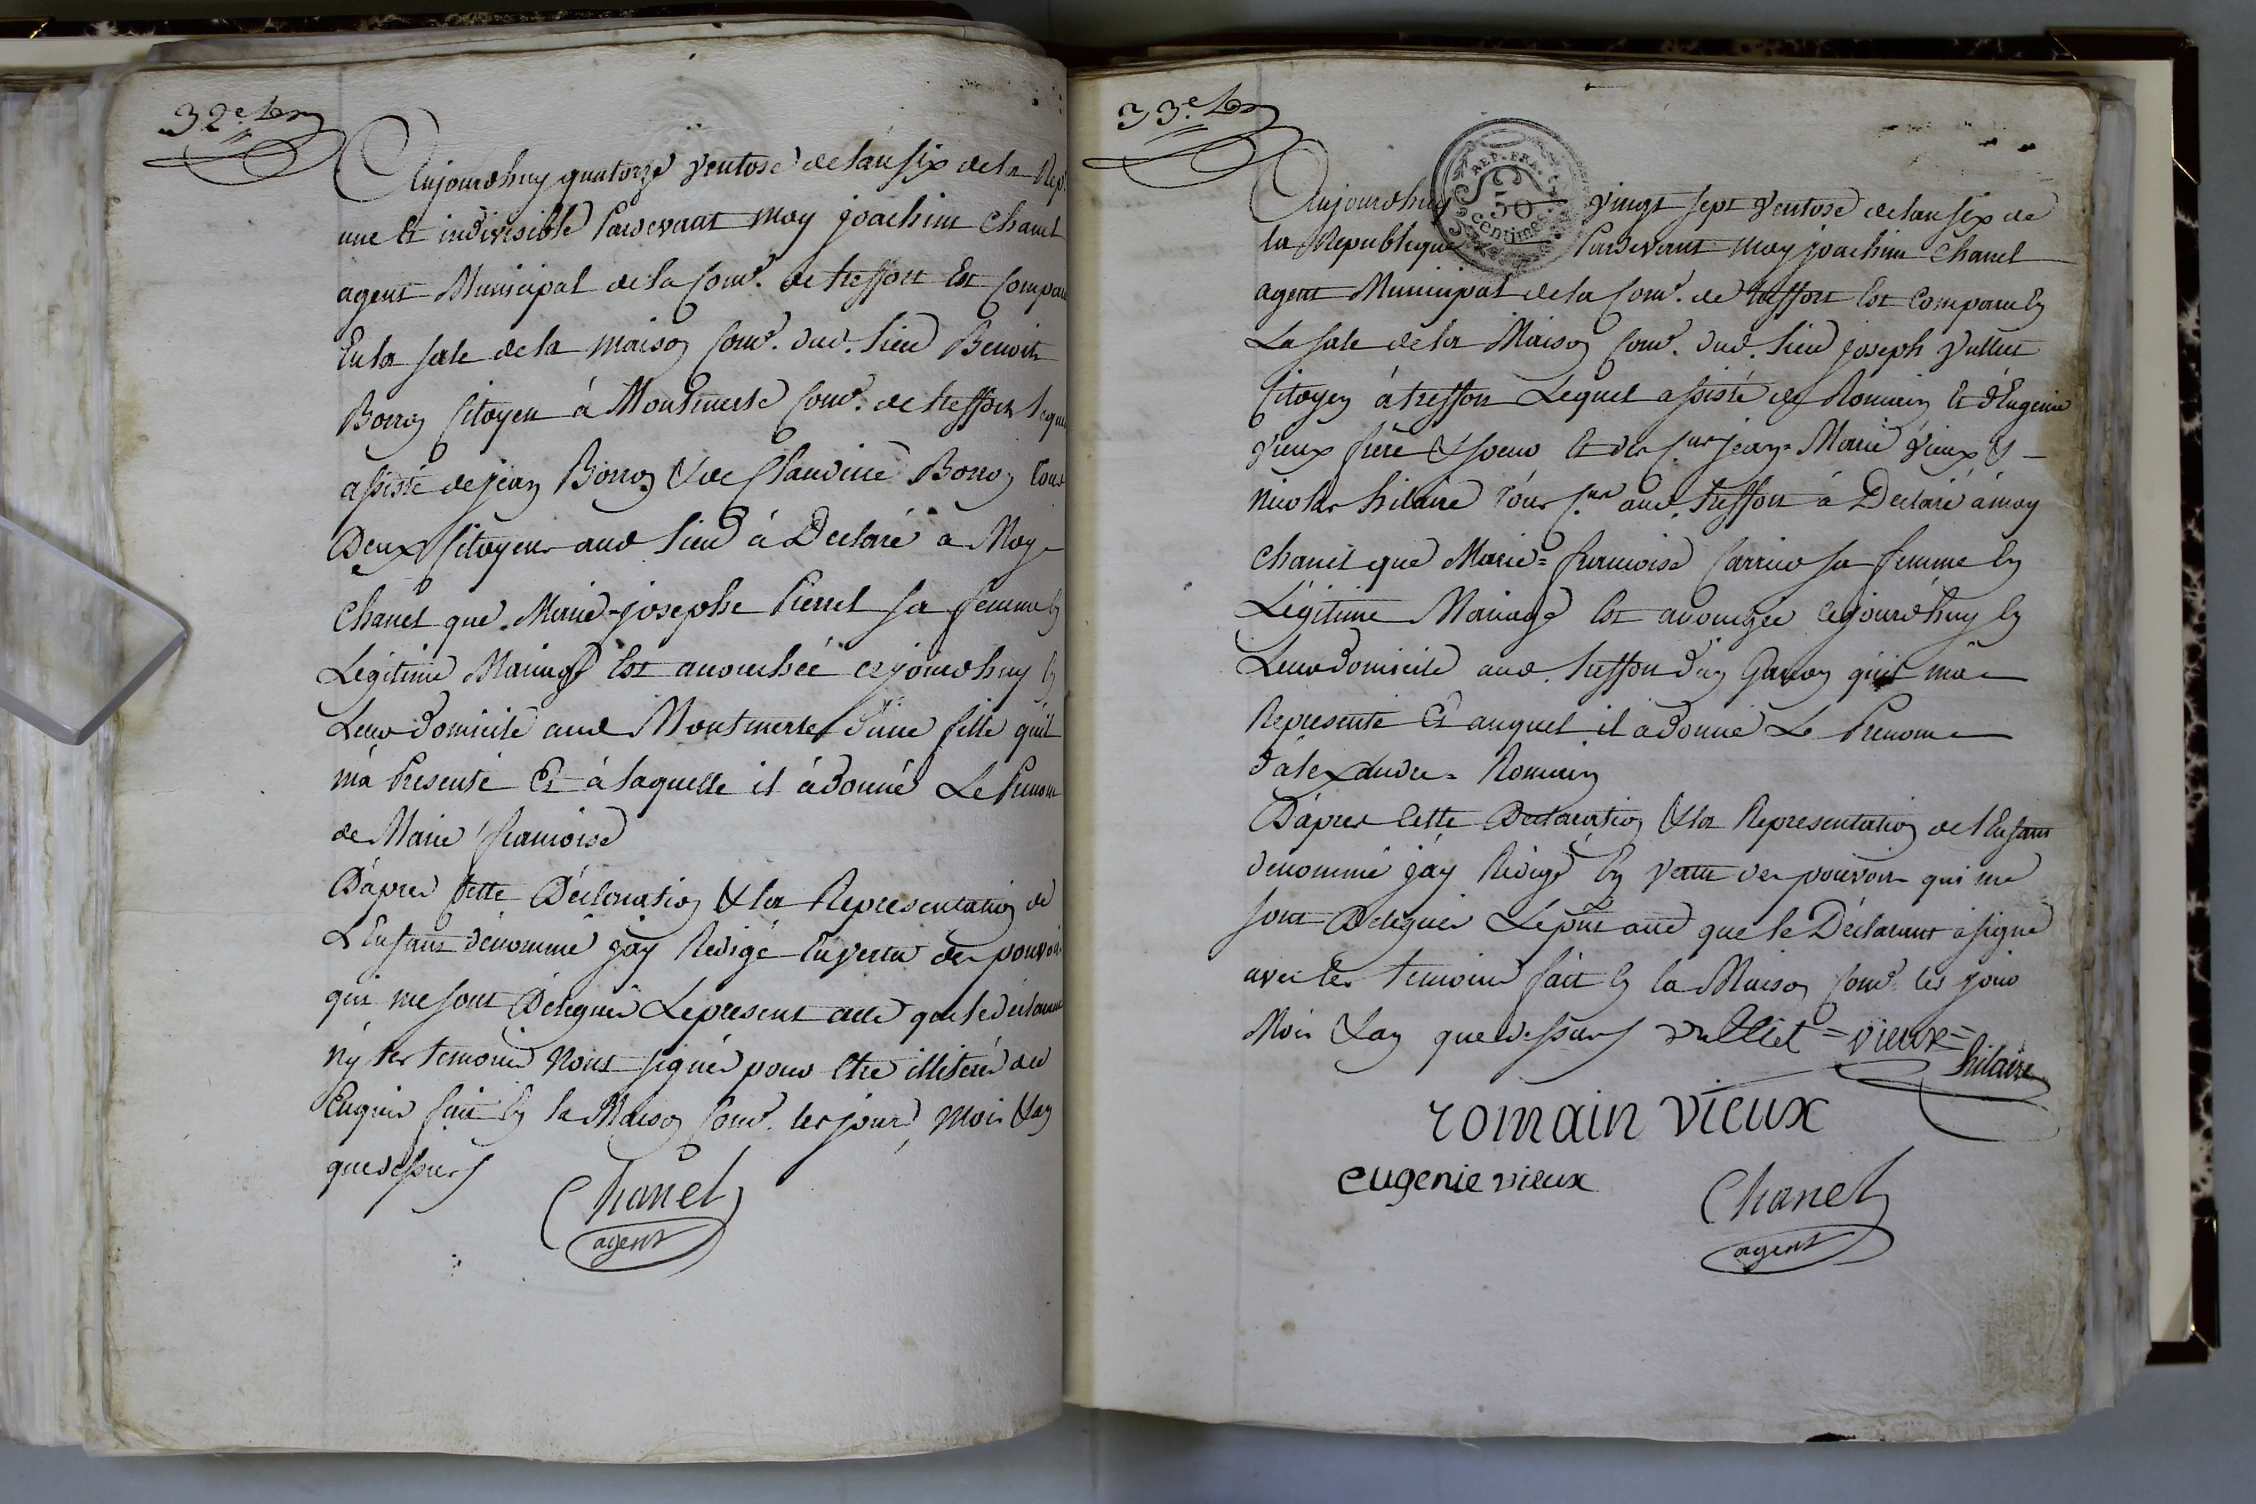 32e
Aujourdhuy quatorze ventose de lan six de la Rep.
une et indivisible Pardevant moy joachim Chanel
agent Municipal de la Com.e de treffort Est Comparu
En la sale de la maison Com.e dud. lieu Benoit
Borron Citoyen à Montmerle Com.e de treffort lequel
assisté de jean Borron & de Claudine Borron tous
Deux Citoyens aud lieu à Declaré à Moy
Chanel que Marie-josephe Pierrel sa femme en
Légitime Mariage Est accouchée cejourdhuy en
Leur domicile aud Montmerle d'une fille qu'il
m'a Presenté Et à laquelle il à donné Le Prenom
de Marie françoise
D'après Cette Déclaration & la Representation de
L'Enfant dénommé j'ay Redigé En vertu des pouvoirs
qui me sont Délegués Le present acte que le declarant
n'y les temoins N'ont signés pour être illiterés de
Enquis fait en la Maison Com.e les jour, Mois & an
que dessus
Chanel
agent
33e
Aujourdhuy vingt sept ventose de lan six de
la Republique Pardevant moy joachim Chanel
agent Municipal de la Com.e de treffort Est Comparu En
La sale de la Maison Com.e dud. lieu joseph vulliet
Citoyen à treffort Lequel assisté de Romain et d'Eugenie
vieux frère & soeur et des C.ens jean-Marie vieux &
nicolas hilaire tous C.ens aud. treffort à Declaré à moy
Chanel que Marie=francoise Carrier sa femme En
Légitime Mariage Est accouchée cejourd'huy En
Leur domicile aud. treffort d'un Garcon qu'il m'a
Representé Et auquel il à donné Le Prenom
d'alexandre=Romain
D'après Cette Declaration & la Representation de l'Enfant
denommé j'ay Redigé En vertu des pouvoirs qui me
sont Delegués Le pnt acte que le Déclarant à signé
avec les temoins fait En la Maison Com.e les jour
Mois & an que dessus vulliet =vieux=
hilaire
romain vieux
eugenie vieux
Chanel
agent
REP. FRA.
50
Centimes